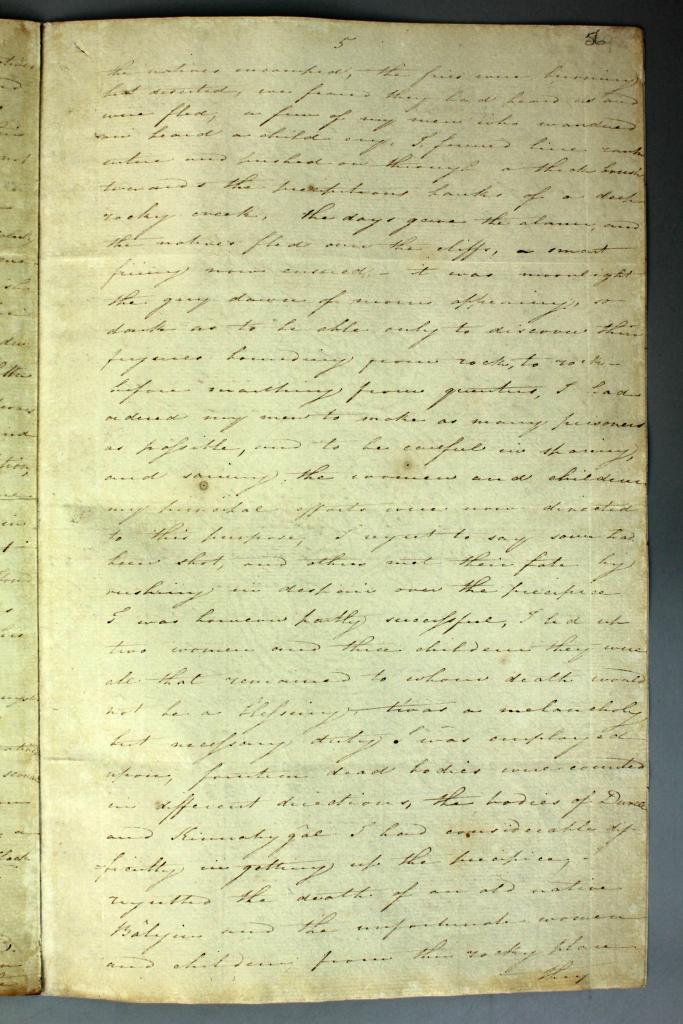 5
56
the natives encamped, the fires were burning
but deserted, we feared they had heard us and
were fled, a few of my men who wandered
on heard a child cry, I formed line rank
entire and pushed on through a thick brush
towards the precipitous banks of a deep
rocky creek, the dogs gave the alarm and
the natives fled over the cliffs, a smart
firing now ensued, - it was moonlight
the grey dawn of moon appearing, so
dark as to be able only to discover their
figures bounding from rock, to rock -
before marching from quarters, I had
ordered my men to make as many prisoners
as possible, and to be careful in sparing
and saving the women and children
my principal efforts were now directed
to this purpose, I regret to say some had
been shot, and others met their fate by
rushing in despair over the precipice
I was however partly successful, I led up
two women and three children they were
all that remained to whom death would
not be a blessing. twas a melancholy
but necessary duty I was employed
upon, fourteen dead bodies were counted
in different directions, the bodies of Durelle
and Kinnabygal I had considerable dif-
ficulty in getting up the precipice, -
regretted the death of an old native
Bālyin and the unfortunate women
and children from the rocky place
they